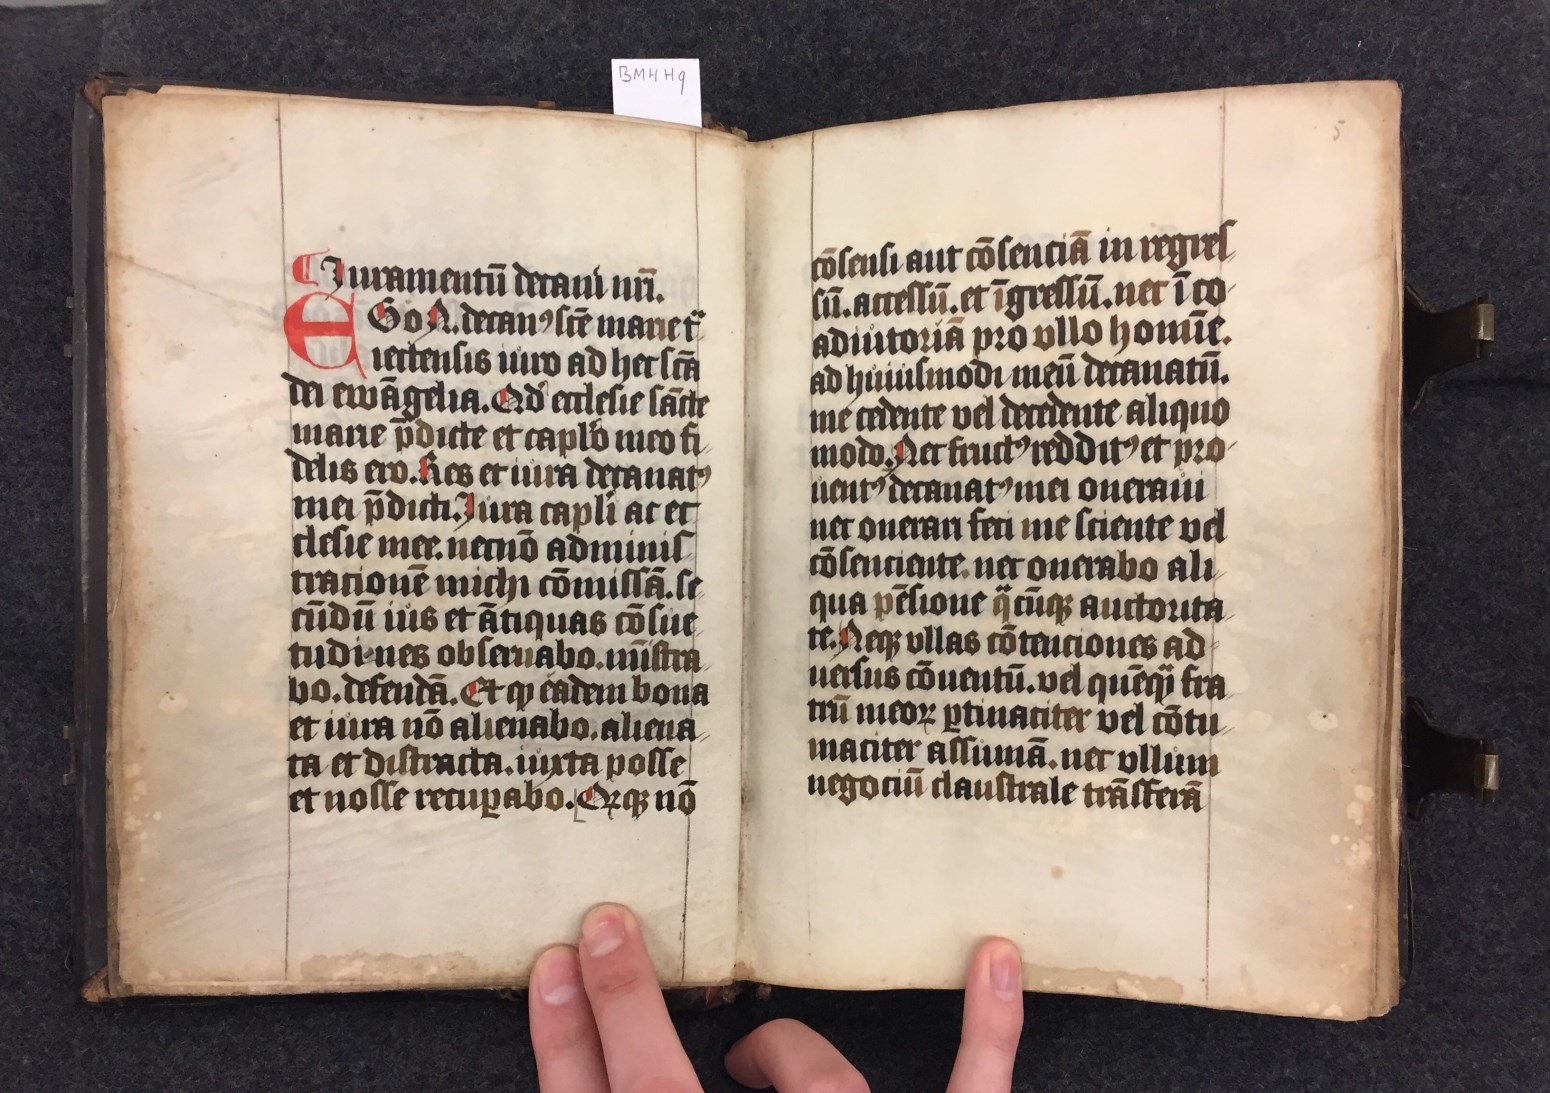 BMH Hq
5
Iuramentū decani nrī.
EGo N. decanꝰ scē marie t͛
iectensis iuro ad hec scā
dei ewāgelia. Qd̛ ecclesie sācte
marie p̄dicte et caplo meo fi
delis ero. Res et iura decanatꝰ
mei p̄dicti. Iura capli ac ec
clesie mee. necnō adminis
tracionē michi cōmissā. se
cūdū ius et ātiquas cōsue
tudines obseruabo. mīstra
bo. defendā. Et qꝫ eadem bona
et iura nō alienabo. aliena
ta et distracta. iuxta posse
et nosse recuꝑabo. Qꝛqꝫ nō
cōsensi aut cōsenciā in regres
sū. accessū. et īgressū. nec ī co
adiutoriā pro vllo homīe.
ad huiusmodi meū decanatū.
me cedente vel decedente aliquo
modo. Nec fructꝰ redditꝰ et pro
uentꝰ decanatꝰ mei oneraui
nec onerari feci me sciente vel
cōsenciente. nec onerabo ali
qua pēsione q̄cūqꝫ auctorita
te. Neqꝫ vllas cōtenciones ad
uersus cōuentū. vel quēqͣ fra
trū meoꝝ ꝑtinaciter vel cōtu
maciter assumā. nec vllum
negociū claustrale trāsferā